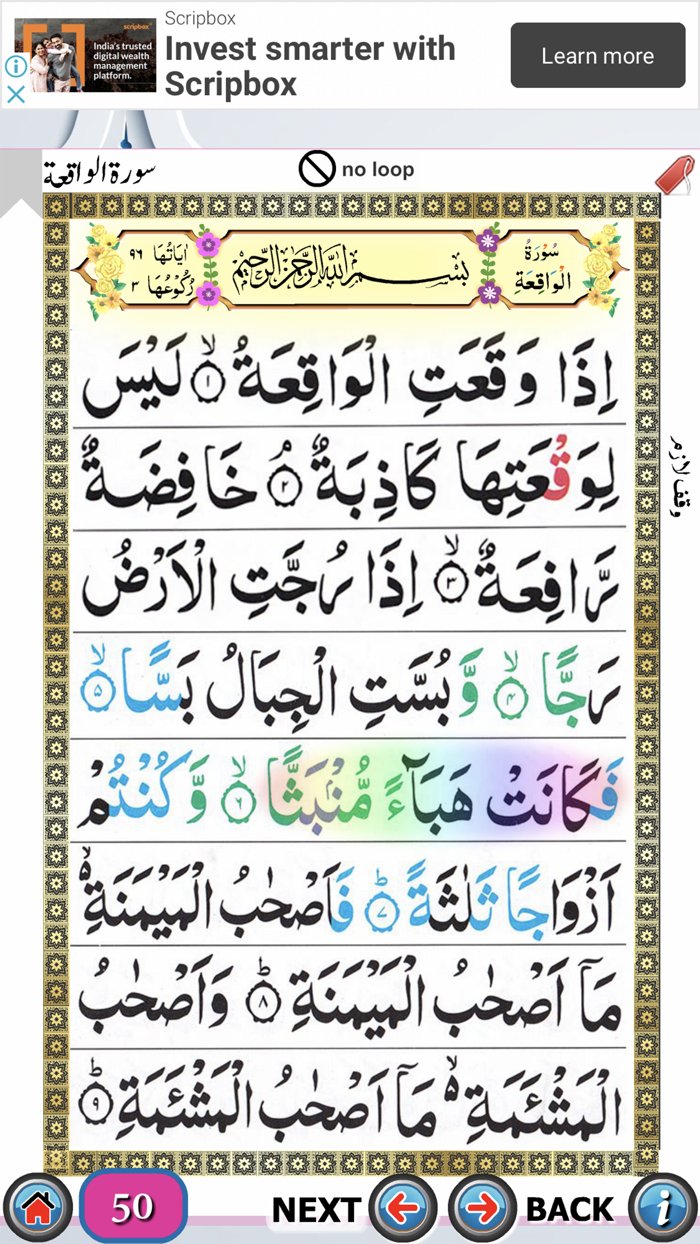 scripbox
India's trusted
digital wealth
management
platform.
Scripbox
Invest smarter with
Scripbox
Learn more
سورة الواقعة
no loop
سُوْرَةُ
الْوَاقِعَةِ
بِسْمِ اللهِ الرَّحْمٰنِ الرَّحِيْمِ
اٰيَاتُهَا ٩٦
رُكُوْعُهَا ٣
اِذَا وَقَعَتِ الْوَاقِعَةُ ۙ ١ لَيْسَ
لِوَقْعَتِهَا كَاذِبَةٌ ۘ ٢ خَافِضَةٌ
وقف لازم
رَّافِعَةٌ ۙ ٣ اِذَا رُجَّتِ الْاَرْضُ
رَجًّا ۙ ٤ وَّ بُسَّتِ الْجِبَالُ بَسًّا ۙ ٥
فَكَانَتْ هَبَآءً مُّنْۢبَثًّا ۙ ٦ وَّ كُنْتُمْ
اَزْوَاجًا ثَلٰثَةً ؕ ٧ فَاَصْحٰبُ الْمَيْمَنَةِ ۙ۬
مَاۤ اَصْحٰبُ الْمَيْمَنَةِ ؕ ٨ وَاَصْحٰبُ
الْمَشْـَٔمَةِ ۙ۬ مَاۤ اَصْحٰبُ الْمَشْـَٔمَةِ ؕ ٩
50
NEXT
BACK